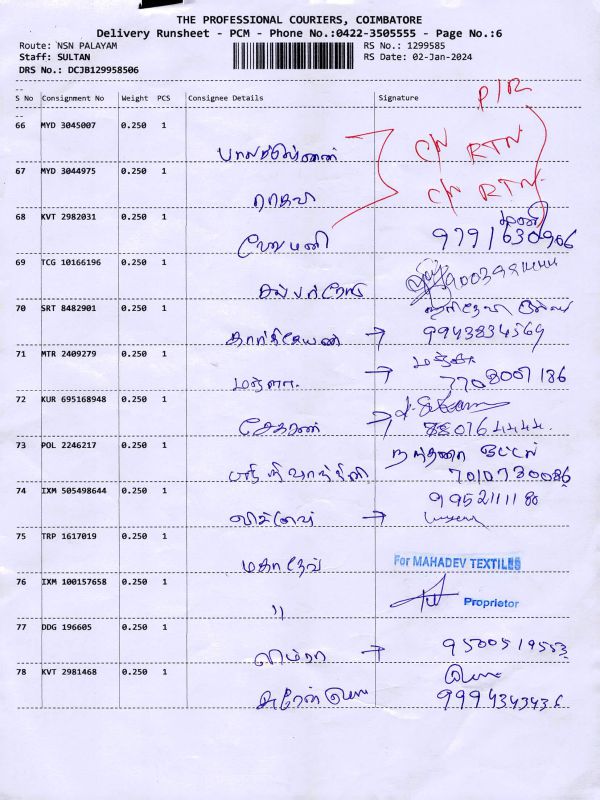 THE PROFESSIONAL COURIERS, COIMBATORE
Delivery Runsheet - PCM - Phone No.:0422-3505555 - Page No.:6
Route: NSN PALAYAM RS No.: 1299585
Staff: SULTAN RS Date: 02-Jan-2024
DRS No.: DCJB129958506
S No Consignment No Weight PCS Consignee Details Signature
P/R
66 MYD 3045007 0.250 1
C/N RTN
67 MYD 3044975 0.250 1
C/N RTN
ராதவி
68 KVT 2982031 0.250 1
மணி
ஹேமமணி 9791630906
69 TCG 10166196 0.250 1
9003981444
70 SRT 8482901 0.250 1
கார்த்திகேயன் → 9943834569
71 MTR 2409279 0.250 1
மஞ்சுளா → 7708007186
72 KUR 695168948 0.250 1
சேகரன் → 880764444
73 POL 2246217 0.250 1
7010730086
74 IXM 505498644 0.250 1
9952111180
விக்னேஷ் →
75 TRP 1617019 0.250 1
மகாதேவ் For MAHADEV TEXTILES
76 IXM 100157658 0.250 1
Proprietor
"
77 DDG 196605 0.250 1
→ 9500519553
78 KVT 2981468 0.250 1
9994343436